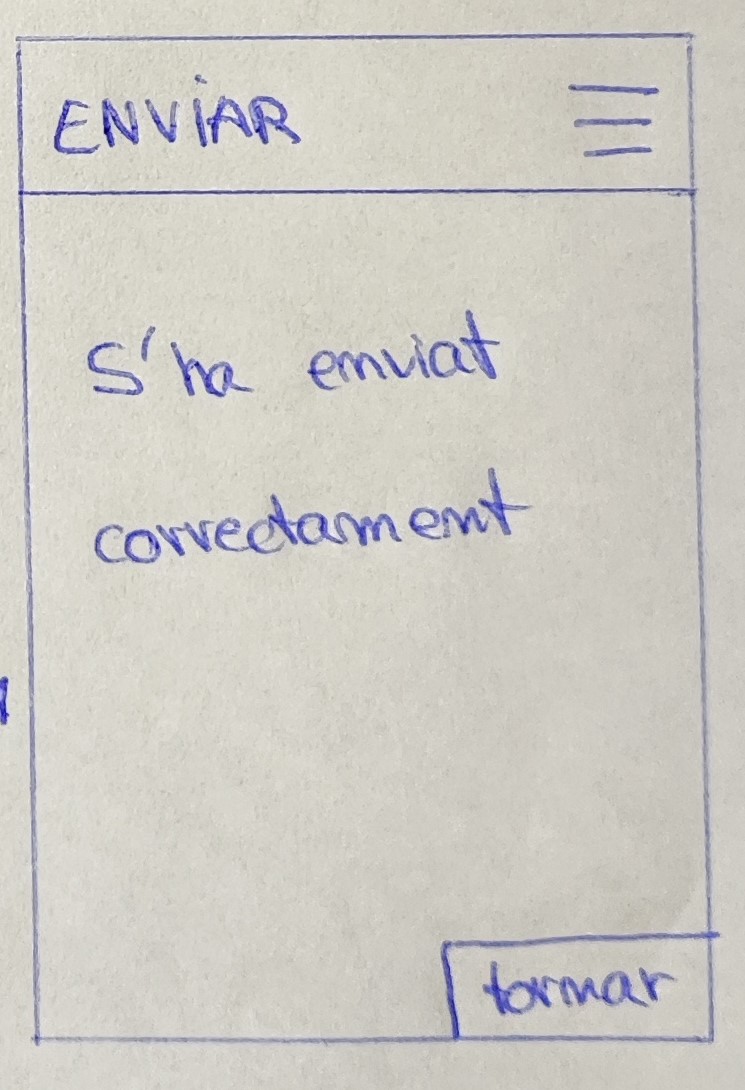 ENVIAR
S'ha enviat
correctament
tornar